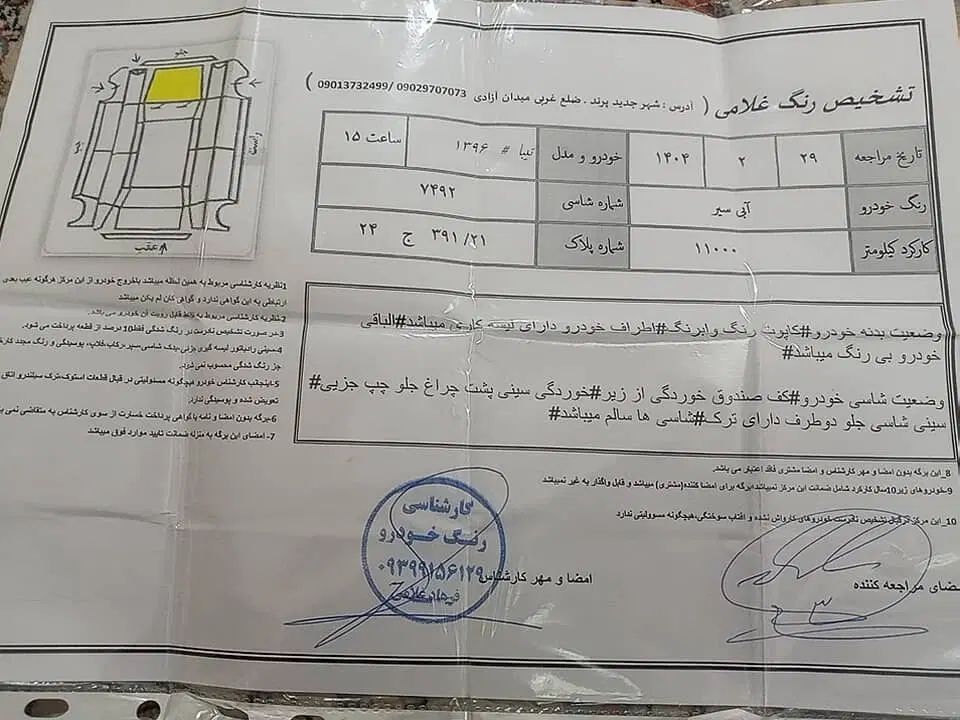 تشخیص رنگ غلامی ( آدرس : شهر جدید پرند . ضلع غربی میدان آزادی 09029707073 /09013732499 )
تاریخ مراجعه ۲۹ ۲ ۱۴۰۴ خودرو و مدل تیبا # ۱۳۹۶ ساعت ۱۵
رنگ خودرو آبی سیر شماره شاسی ۷۴۹۲
کارکرد کیلومتر ۱۱۰۰۰ شماره پلاک ۲۱/ ۳۹۱ ج ۲۴
جلو
راست
عقب
وضعیت بدنه خودرو#کاپوت رنگ وابرنگ#اطراف خودرو دارای لیسه کاری میباشد#الباقی
خودرو بی رنگ میباشد#
وضعیت شاسی خودرو#کف صندوق خوردگی از زیر#خوردگی سینی پشت چراغ جلو چپ جزیی#
سینی شاسی جلو دوطرف دارای ترک#شاسی ها سالم میباشد#
1نظریه کارشناسی مربوط به همین لحظه میباشد باخروج خودرو از این مرکز هرگونه عیب بعدی
ارتباطی به این گواهی ندارد و گواهی کان لم یکن میباشد
2-نظریه کارشناسی مربوط به نقاط قابل رویت آن خودرو می باشد.
3-در صورت تشخیص نادرست در رنگ شدگی فقط10 درصد از قطعه پرداخت می شود.
4-سینی رادیاتور لیسه گیری جزئی،پدک شاسی،سپر،رکاب،قلاپ، پوسیدگی و رنگ مجدد کارک
جز رنگ شدگی محسوب نمی گردد.
5-اینجانب کارشناس خودرو هیچگونه مسئولیتی در قبال قطعات استوک،ترک سیلندرو اتاق
تعویض شده و پوسیدگی ندارد.
6-برگه بدون امضا و نامه یاگواهی پرداخت خسارت از سوی کارشناس به متقاضی نمی با
7- امضای این برگه به منزله ضمانت تایید موارد فوق میباشد
8_این برگه بدون امضا و مهر کارشناس و امضا مشتری فاقد اعتبار می باشد.
9-خودروهای زیر10سال کارکرد شامل ضمانت این مرکز نمیباشد/برگه برای امضا کننده(مشتری) میباشد و قابل واگذار به غیر نمیباشد
10_این مرکز درقبال تشخیص نادرست خودروهای کارواش نشده و افتاب سوختگی،هیچگونه مسوولیتی ندارد
امضای مراجعه کننده
امضا و مهر کارشناس
کارشناسی
رنگ خودرو
۰۹۳۹۹۱۵۶۱۲۹
فرهاد غلامی